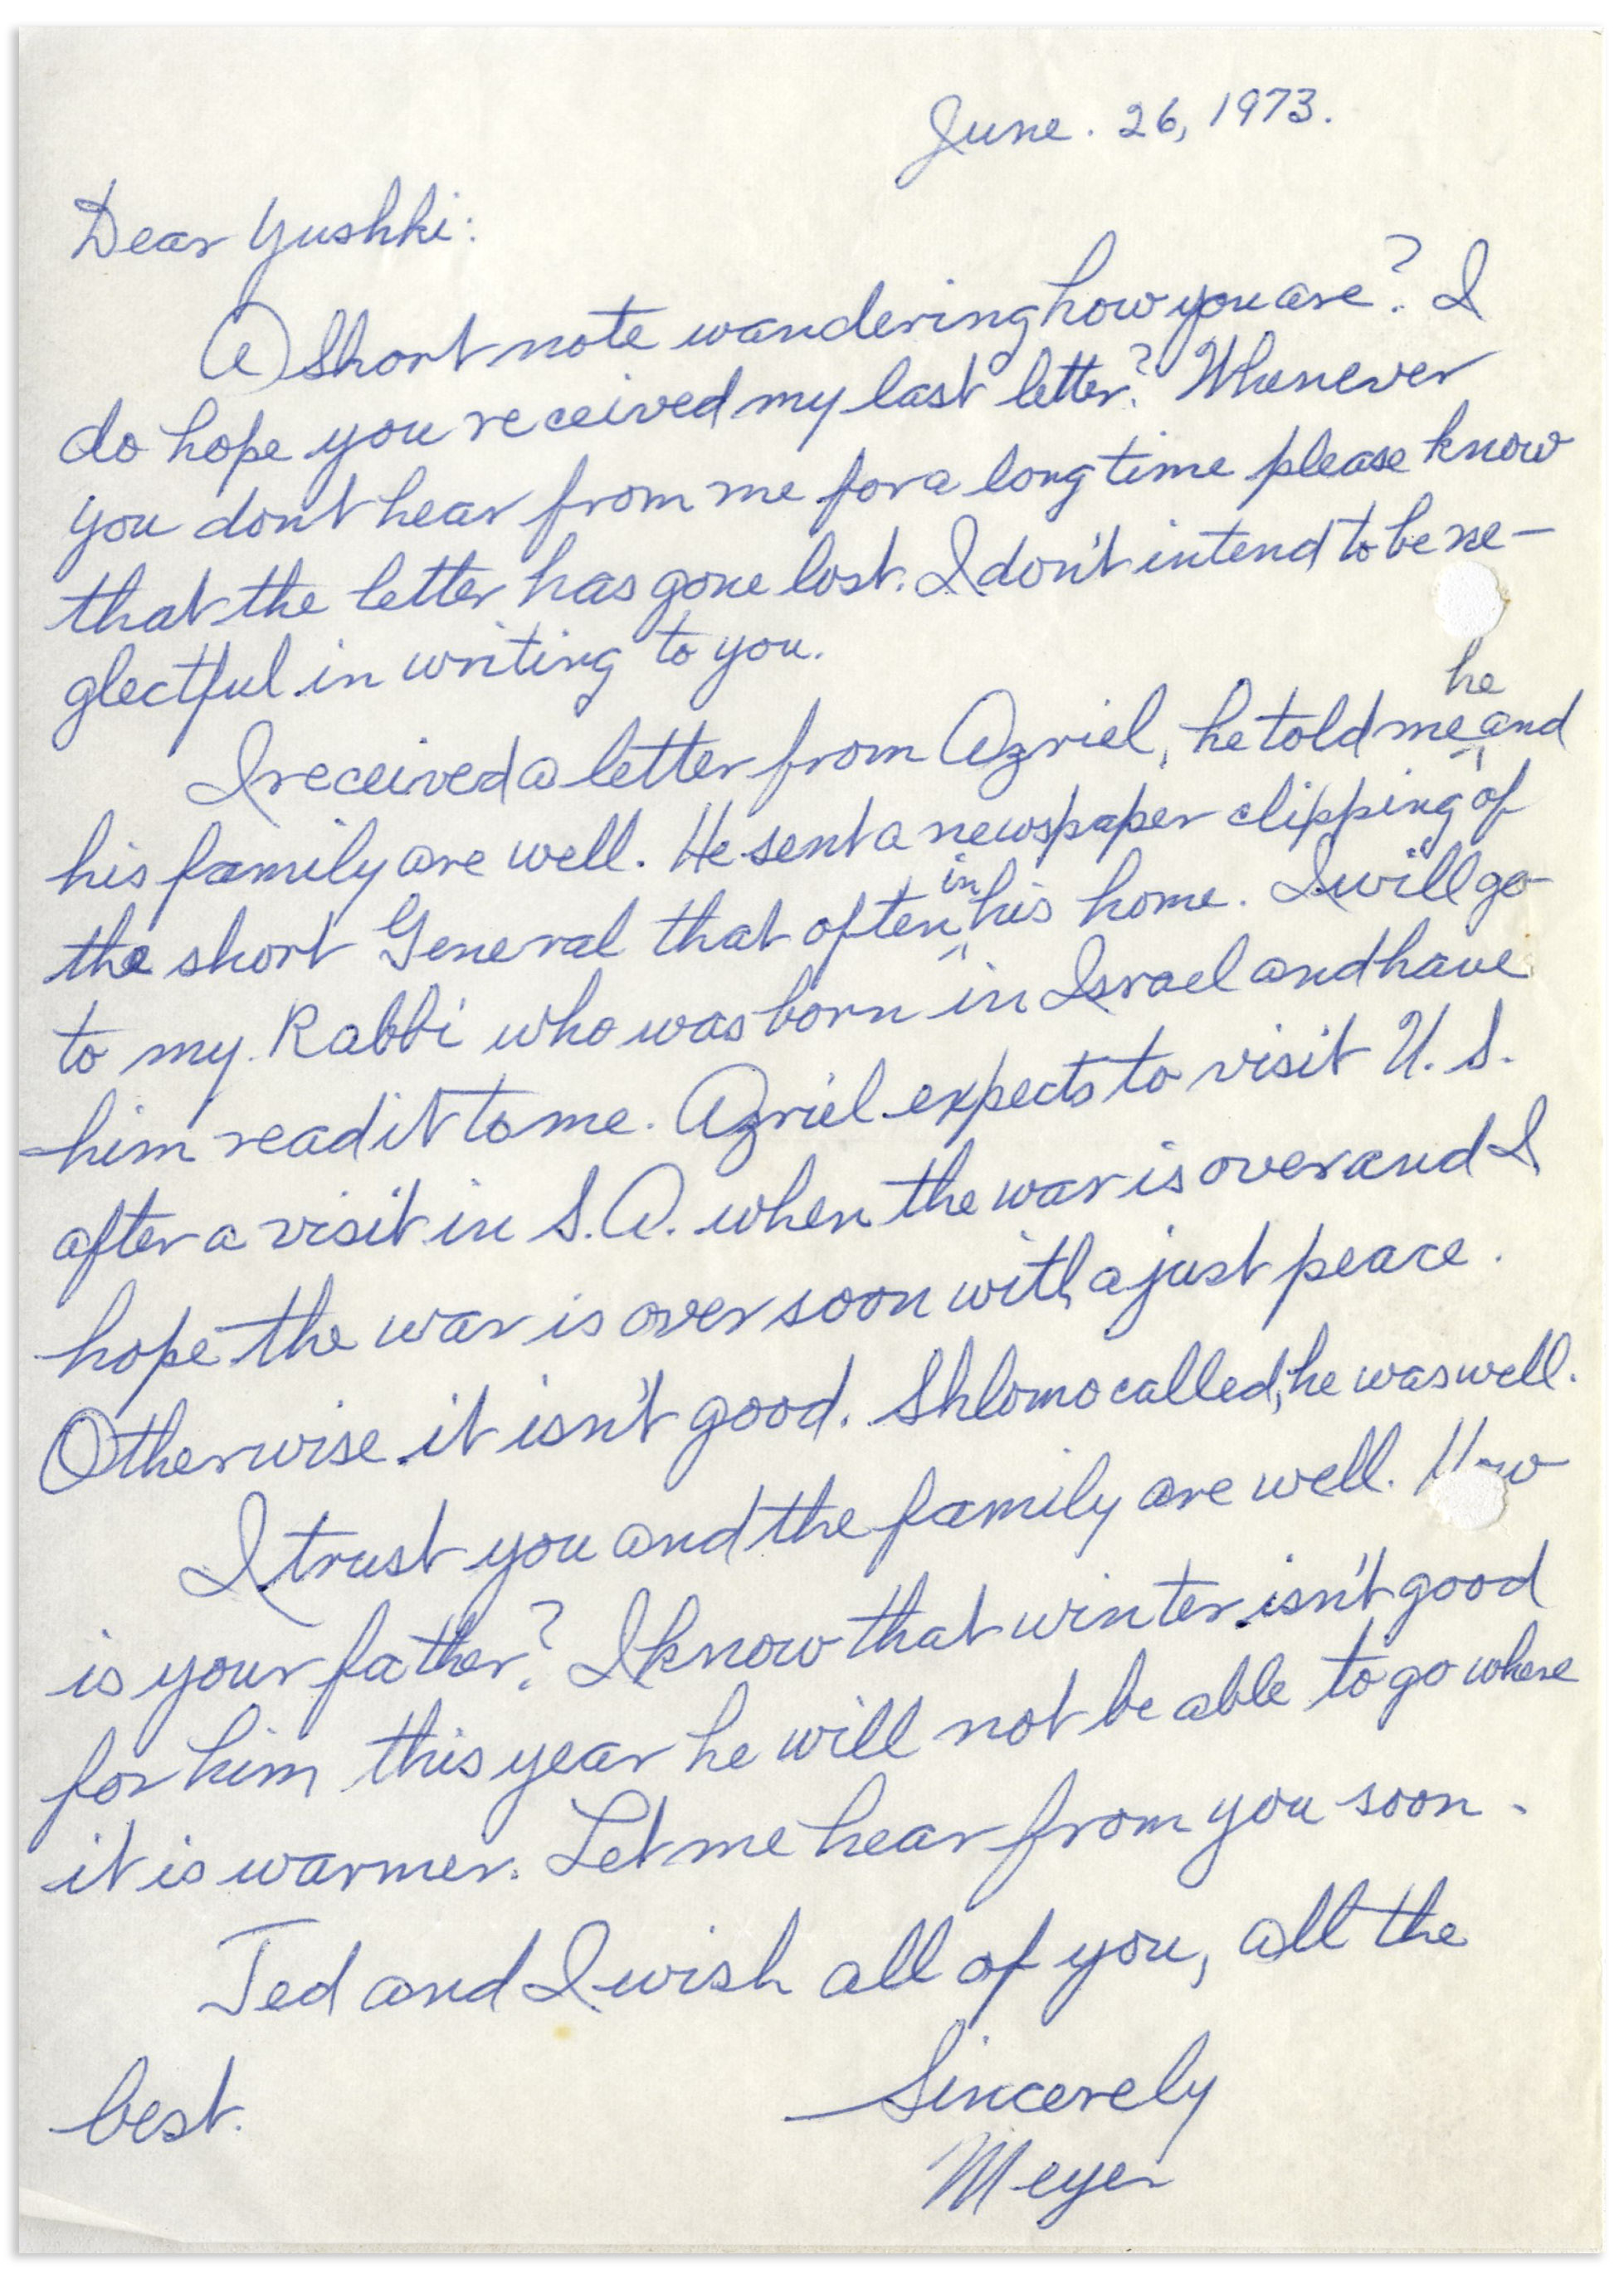 June. 26, 1973.
Dear Yushki:
A short note wandering how you are? I
do hope you received my last letter? Whenever
you dont hear from me for a long time please know
that the letter has gone lost. I don't intend to be ne-
glectful in writing to you.
I received a letter from Azriel, he told me he and
his family are well. He sent a newspaper clipping of
the short General that often in his home. I will go
to my Rabbi who was born in Israel and have
him read it to me. Azriel expects to visit U.S.
after a visit in S.A. when the war is over and I
hope the war is over soon with a just peace.
Otherwise it isn't good. Shlomo called, he was well.
I trust you and the family are well. How
is your father? I know that winter isn't good
for him this year he will not be able to go where
it is warmer. Let me hear from you soon.
Ted and I wish all of you, all the
best.
Sincerely
Meyer